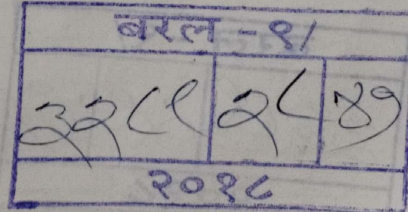 बरल - १/
३२८९ २८ ४७
२०१८